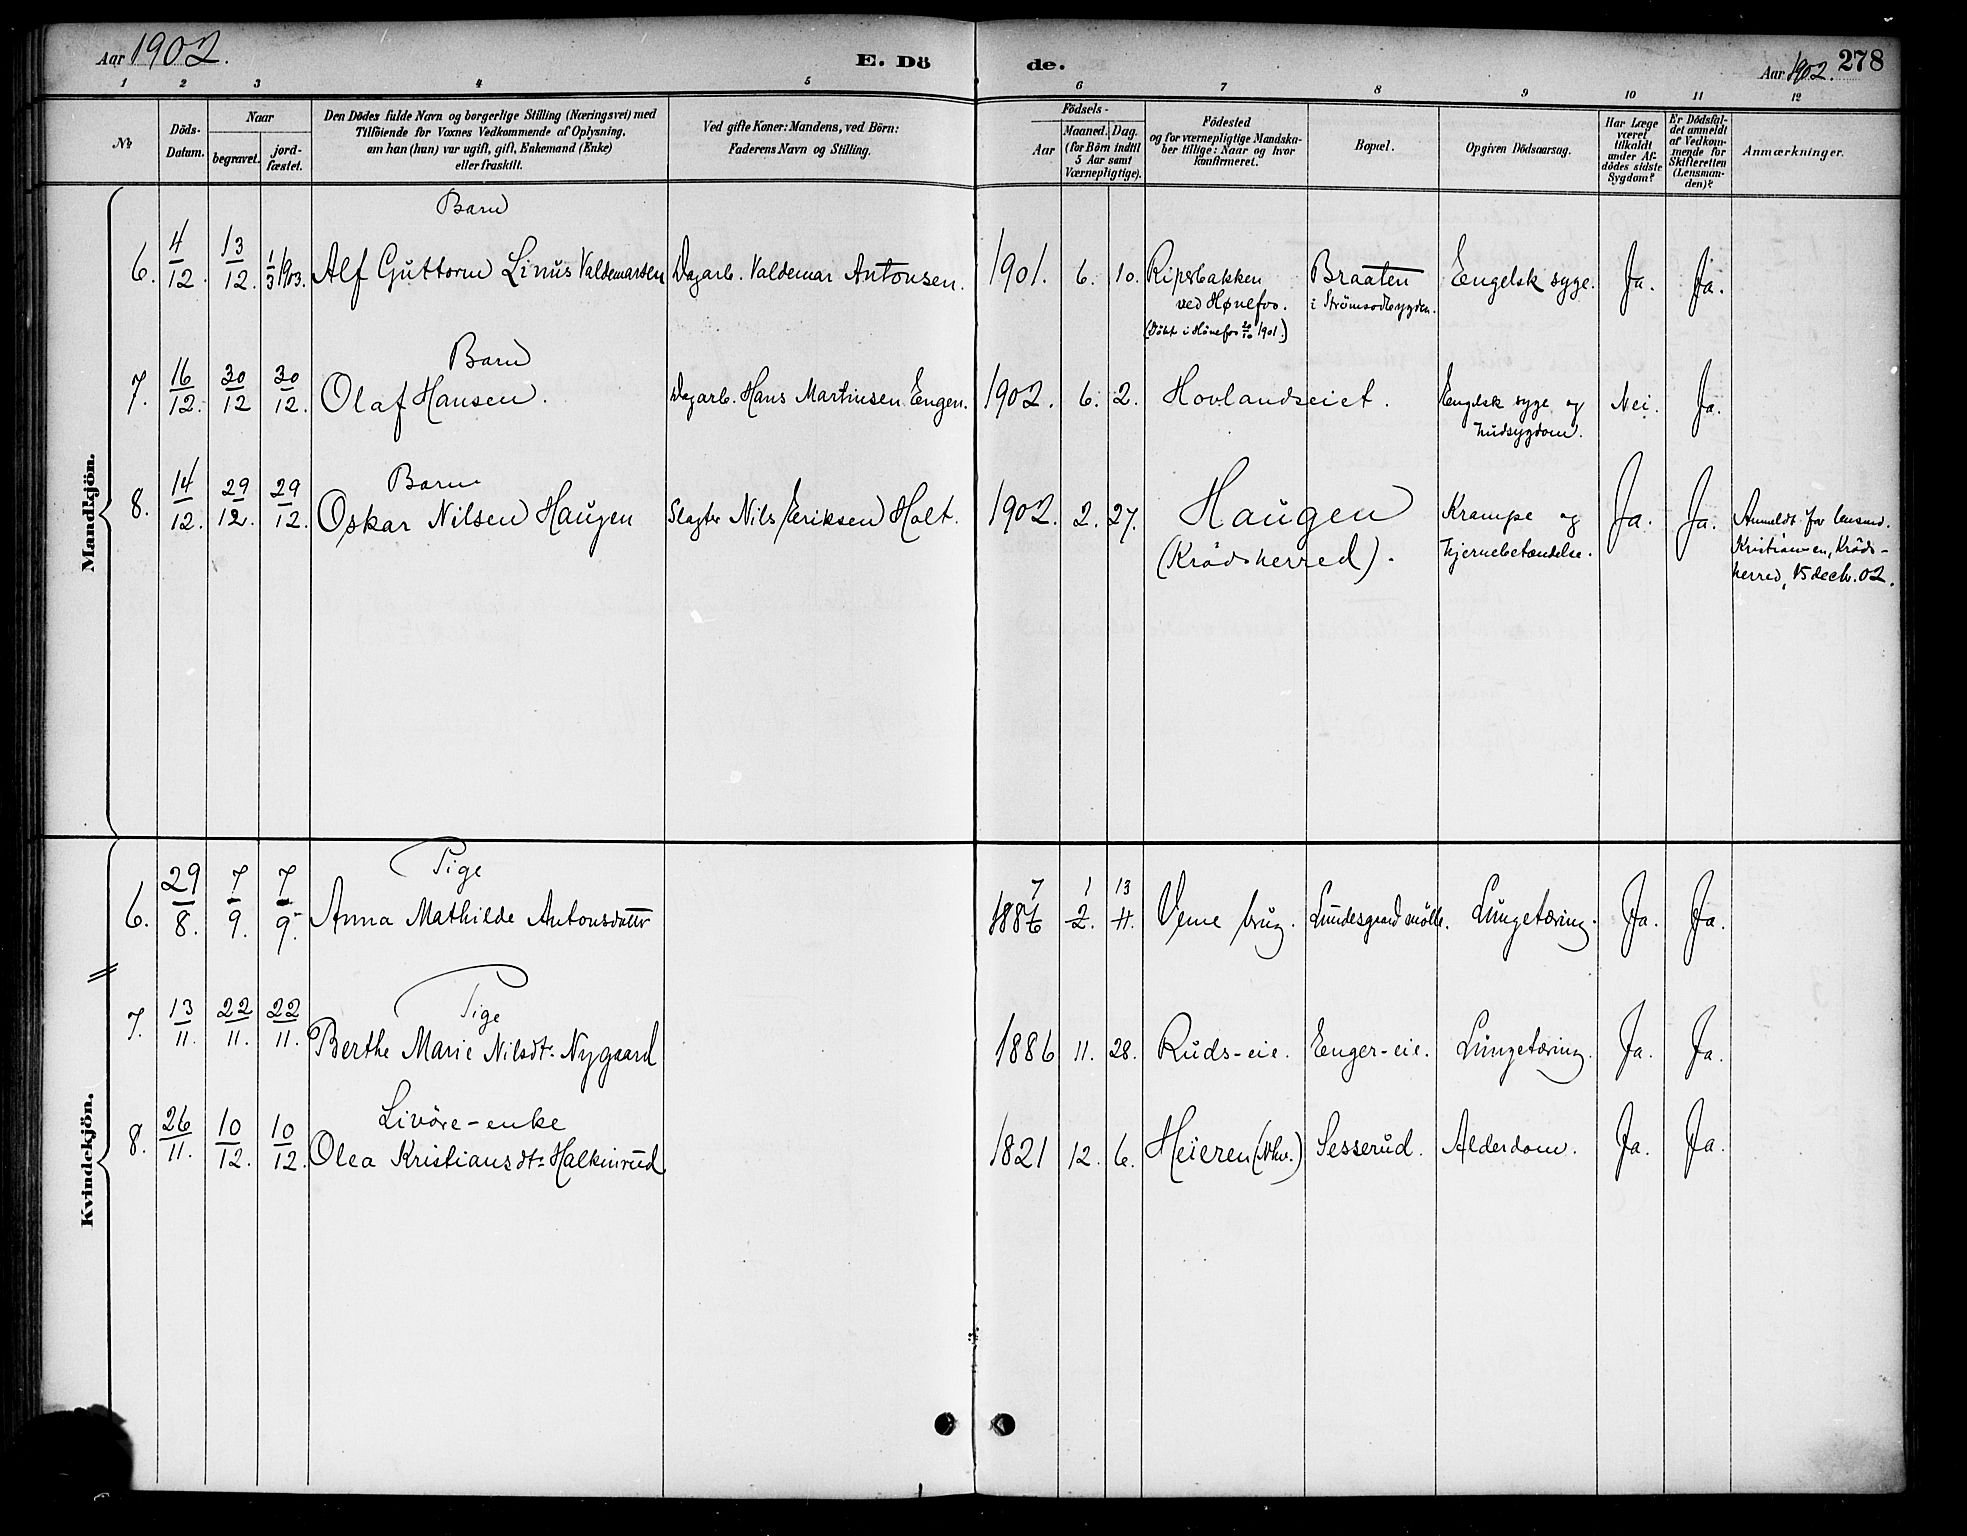 Aar 1902. E. Dö de. Aar 1902. 278
1 2 3 4 5 6 7 8 9 10 11 12
No
Döds-Datum.
Naar
begravet.
jord-fæstet.
Den Dödes fulde Navn og borgerlige Stilling (Næringsvei) med
Tilföiende for Voxnes Vedkommende af Oplysning,
om han (hun) var ugift, gift, Enkemand (Enke)
eller fraskilt.
Ved gifte Koner: Mandens, ved Börn:
Faderens Navn og Stilling.
Födsels-
Aar
Maaned. Dag.
(for Börn indtil
5 Aar samt
Værnepligtige).
Födested
og for værnepligtige Mandska-
ber tillige: Naar og hvor
konfirmeret.
Bopæl.
Opgiven Dödsaarsag.
Har Læge
været
tilkaldt
under Af-
dödes sidste
Sygdom?
Er Dödsfal-
det anmeldt
af Vedkom-
mende for
Skifteretten
(Lensman-
den)?
Anmærkninger.
Mandkjön.
Barn
6. 4/12. 13/12. 1/3 1903. Alf Guttorm Linus Valdemarsen Dagarb. Valdemar Antonsen. 1901. 6. 10. Ripsbakken Braaten Engelsk syge. Ja. Ja.
ved Hønefos. i Strömsodbygden.
(Döbt i Hönefos 20/10 1901.)
Barn
7. 16/12. 30/12 30/12. Olaf Hansen. Dagarb. Hans Martinsen Engen. 1902. 6. 2. Hovlandseiet. Engelsk syge og Nei. Ja.
hudsygdom.
Barn
8. 14/12. 29/12. 29/12. Oskar Nilsen Haugen Slagter Nils Eriksen Holt. 1902. 2. 27. Haugen Krampe og Ja. Ja. Anmeldt for lensmd.
(Krödsherred). hjernebetændelse. Kristiansen, Kröds-
herred, 15 decb. 02.
Kvindekjön.
Pige
6. 29/8. 7/9. 7/9. Anna Mathilde Antonsdatter 1886 7 2. 1 11. 13 Veme brug. Lundesgaard mölle. Lungetæring. Ja. Ja.
Pige
7. 13/11. 22/11. 22/11. Berthe Marie Nilsdt. Nygaard 1886 11. 28. Ruds-eie. Enger-eie. Lungetæring. Ja. Ja.
Livöre-enke
8. 26/11. 10/12. 10/12. Olea Kristiansdt. Halkinrud 1821 12. 6. Heieren (Nhv.) Sesserud. Alderdom. Ja. Ja.